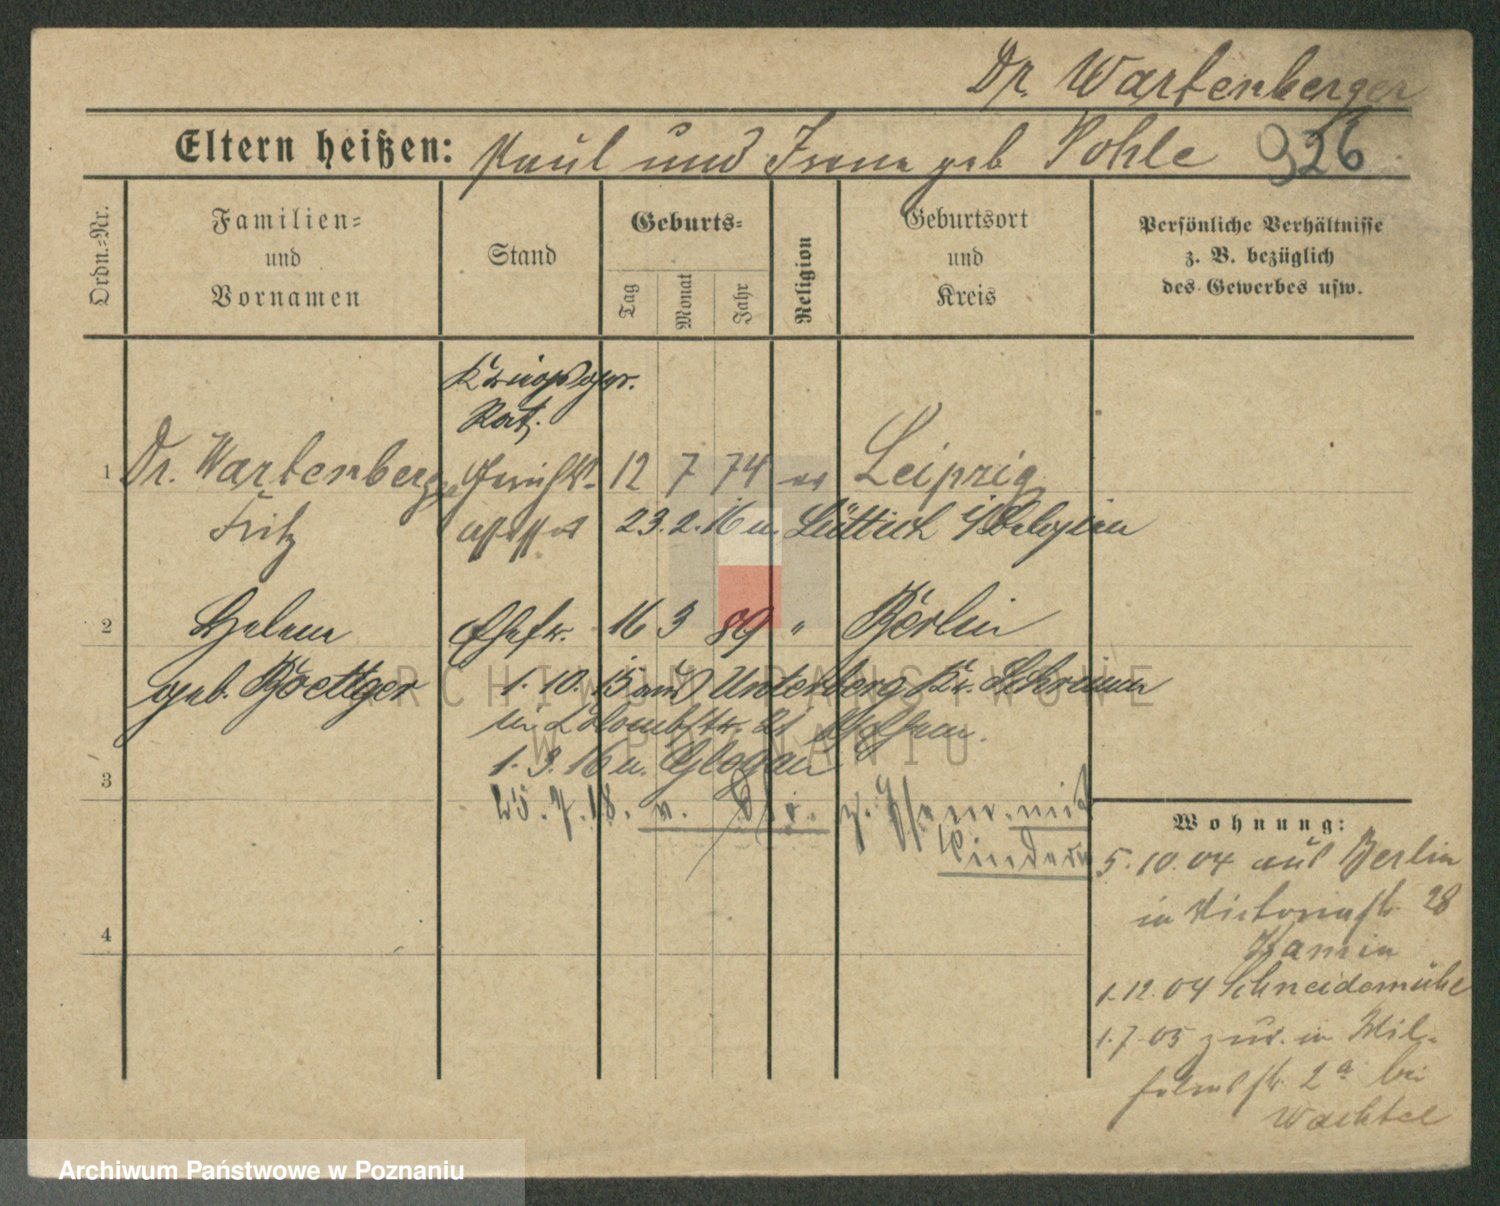 Dr. Wartenberger
Eltern heißen: Paul und Irene geb Pohle 926
Ordn.-Nr.
Familien-
und
Vornamen
Stand
Geburts-
Tag
Monat
Jahr
Religion
Geburtsort
und
Kreis
Persönliche Verhältnisse
z. B. bezüglich
des Gewerbes usw.
Kriegsger.
Rat.
1 Dr. Wartenberger Gerichts- 12 7 74 ev Leipzig
Fritz assessor 23. 2. 16 n. Lüttich i/Belgien
2 Helene Ehefr. 16 3 89 " Berlin
geb. Boettger 1. 10. 15 aus Unterberg Kr. Schrimm
in 21
1. 3. 16 n. Glogau
3 25. 7. 18. v. mit
Kindern
4
Wohnung:
5. 10. 04 aus Berlin
in Victoriastr 28
Kamin
1. 12. 04 Schneidemühl
1. 7. 05 zur. in Wil-
helmstr. 2a bei
Wachtel
ARCHIWUM PAŃSTWOWE
W POZNANIU
Archiwum Państwowe w Poznaniu